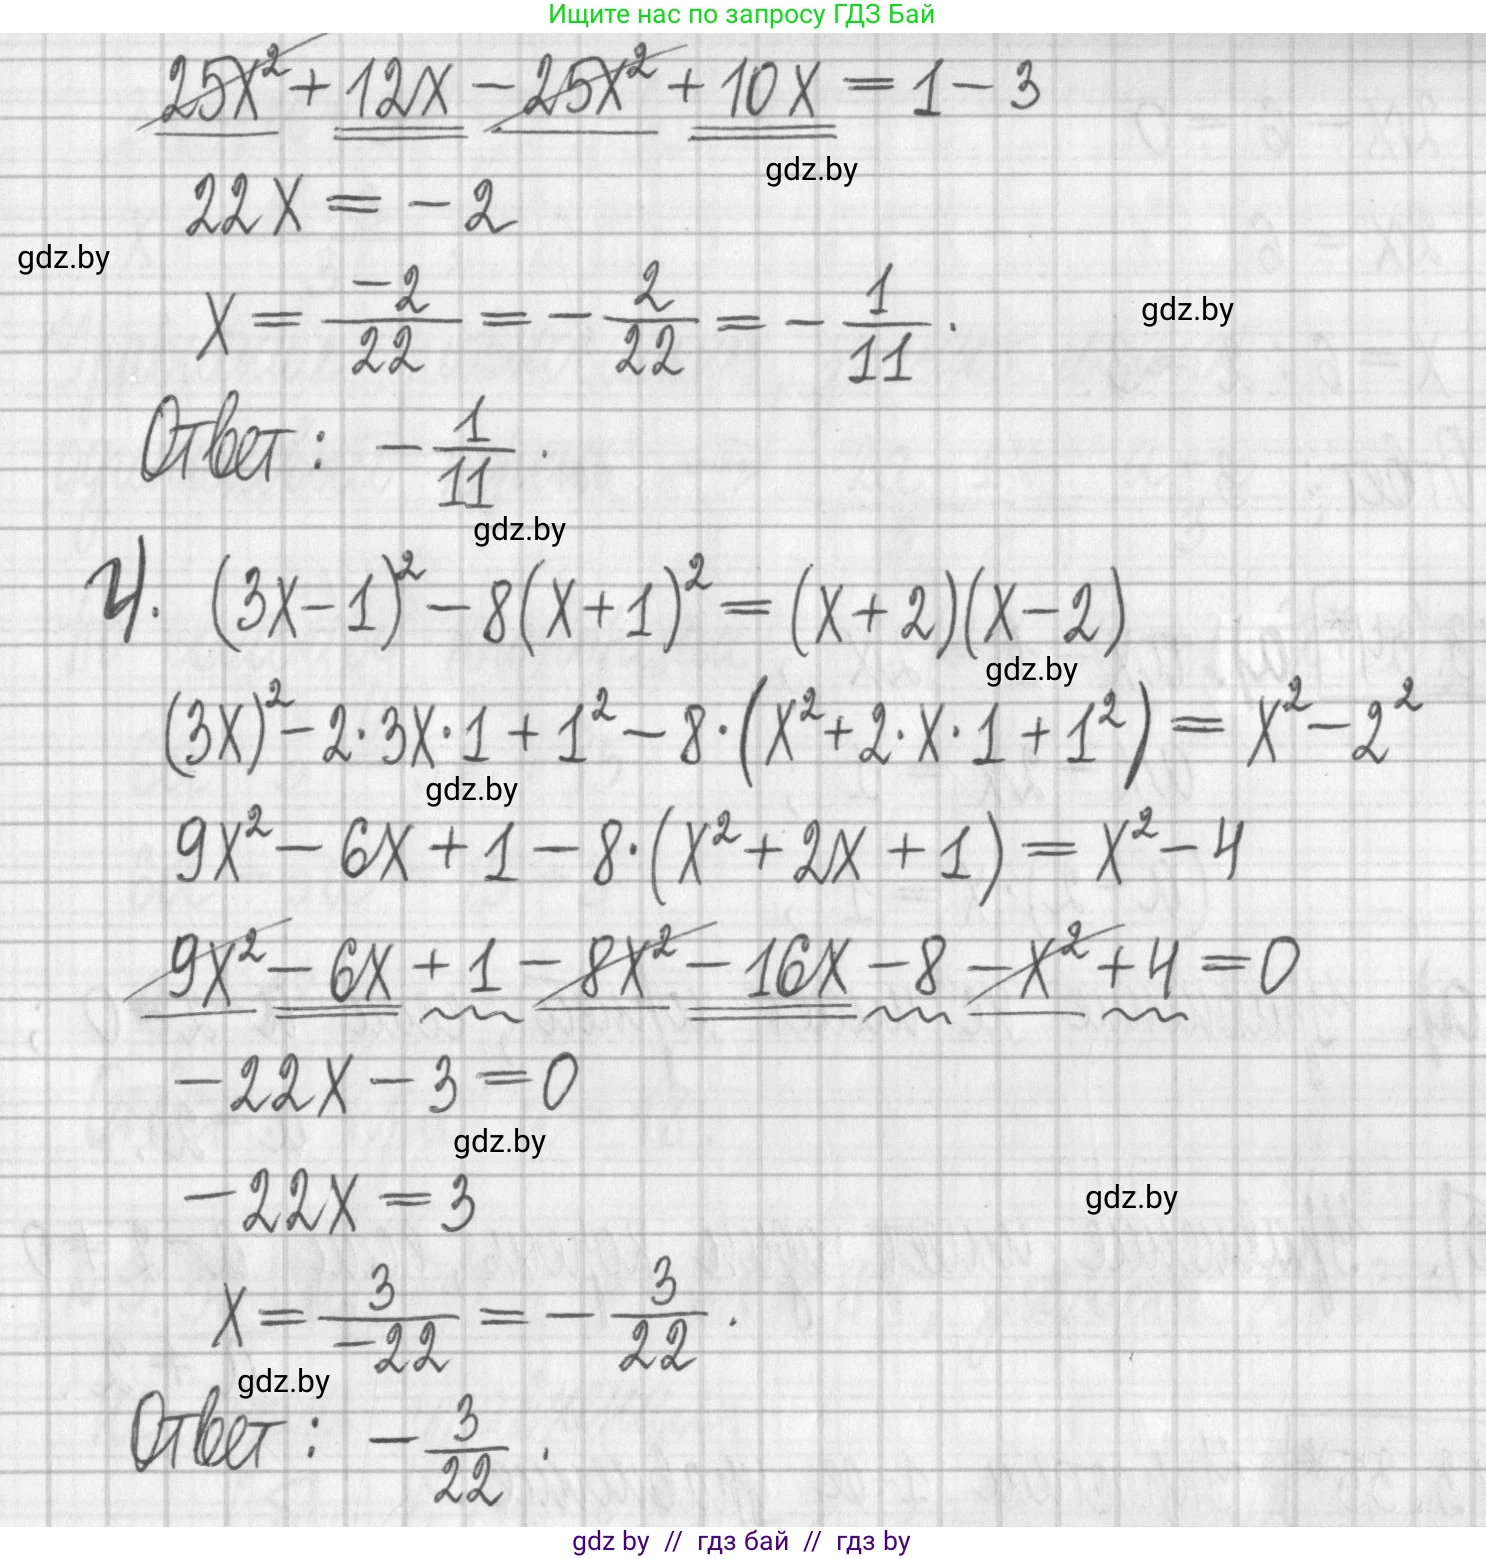 Ищите нас по запросу ГДЗ Бай
25x² + 12x - 25x² + 10x = 1 - 3
gdz.by
22x = -2
gdz.by
x = -2/22 = -2/22 = -1/11.
gdz.by
Ответ: -1/11.
gdz.by
4. (3x-1)² - 8(x+1)² = (x+2)(x-2)
gdz.by
(3x)² - 2·3x·1 + 1² - 8·(x² + 2·x·1 + 1²) = x² - 2²
gdz.by
9x² - 6x + 1 - 8·(x² + 2x + 1) = x² - 4
9x² - 6x + 1 - 8x² - 16x - 8 - x² + 4 = 0
-22x - 3 = 0
gdz.by
-22x = 3
gdz.by
x = 3/-22 = -3/22.
gdz.by
Ответ: -3/22.
gdz by // гдз бай // гдз by